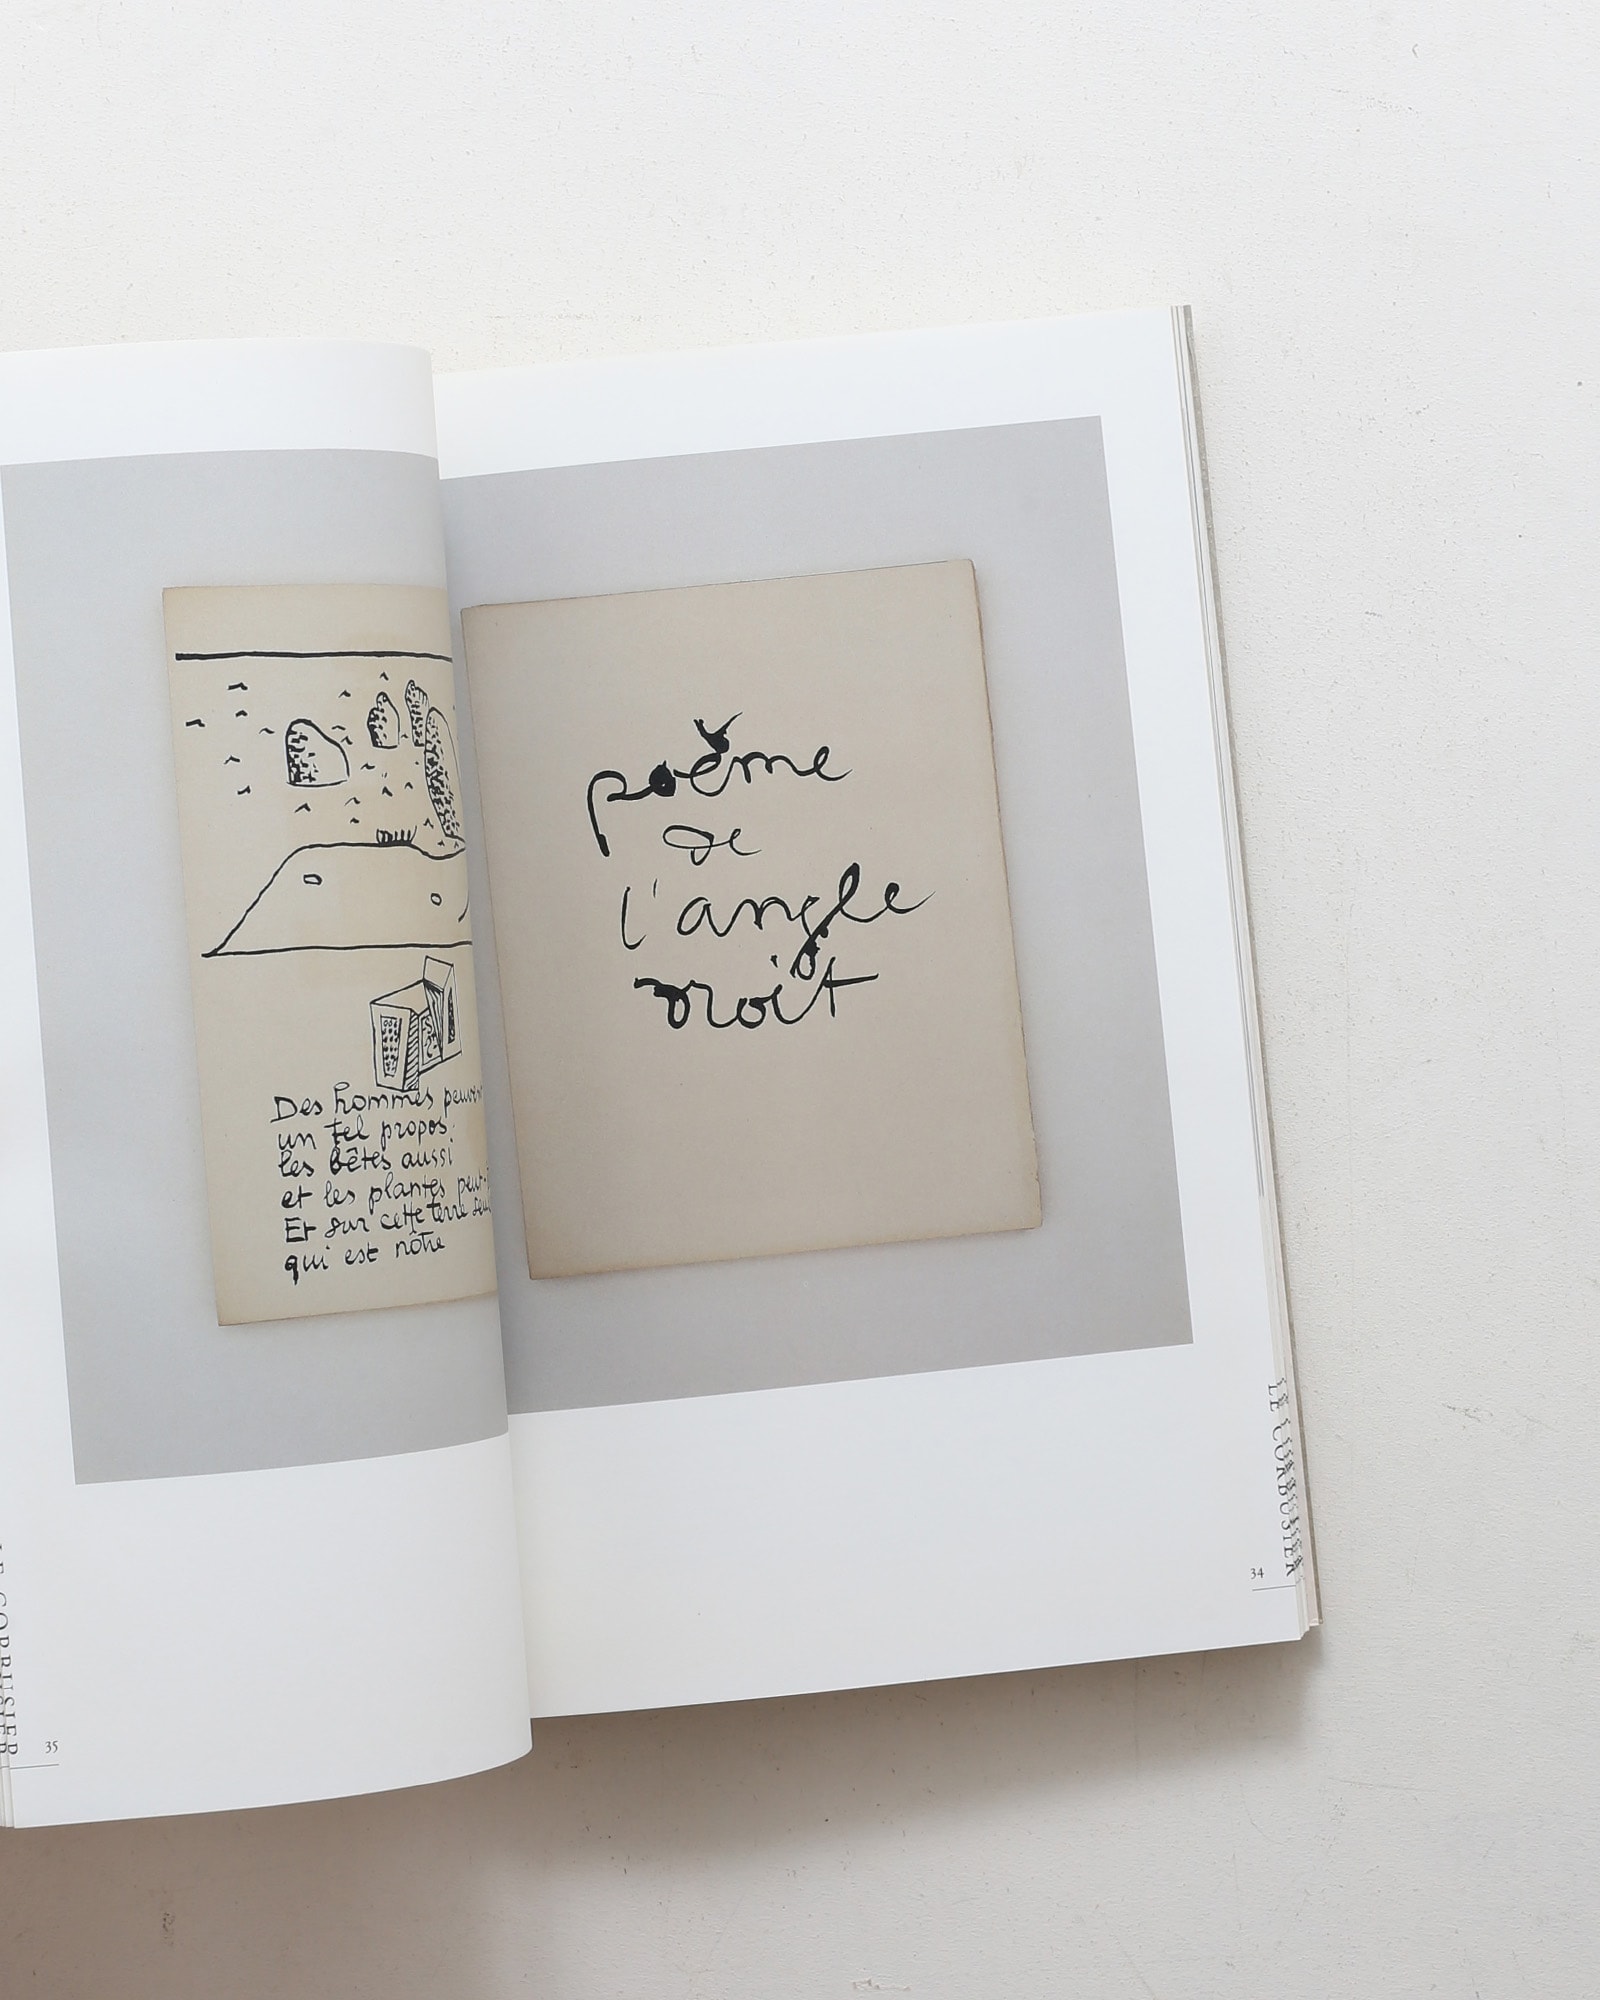 poème
de
l'angle
droit
LE CORBUSIER
34
Des hommes
un tel propos
les bêtes aussi
et les plantes
Et sur cette terre
qui est nôtre
LE CORBUSIER
35